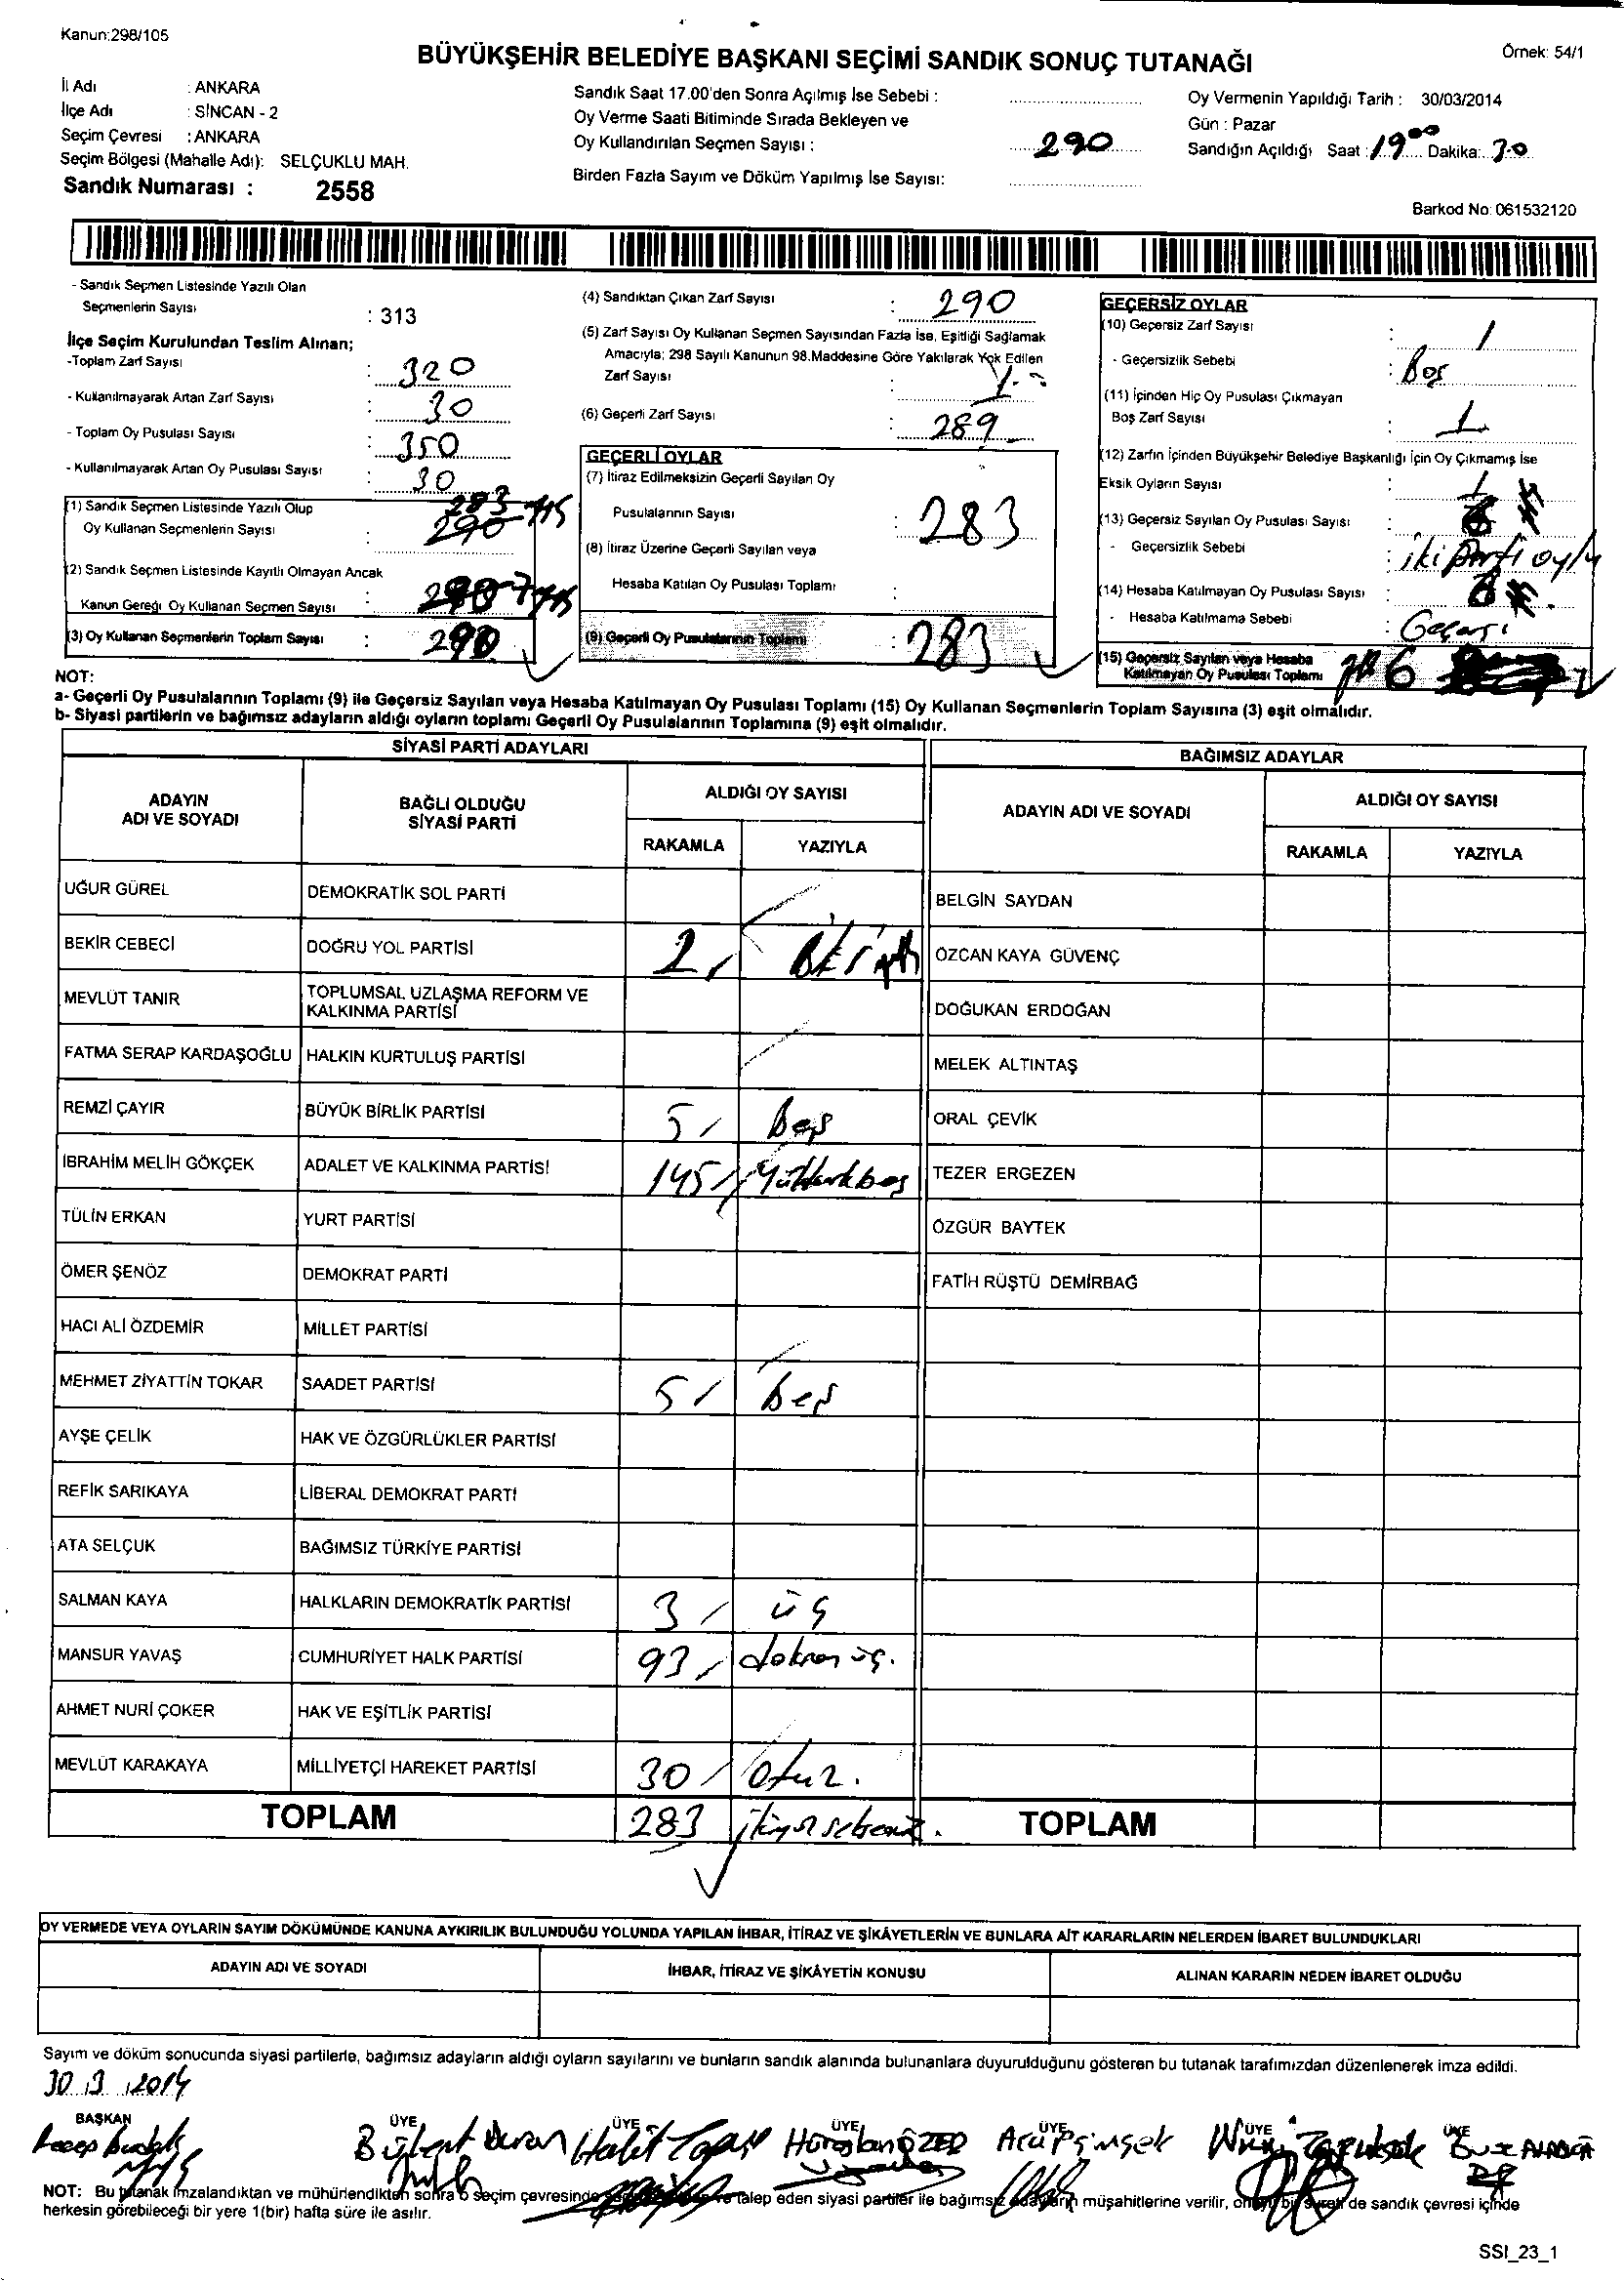 Kanun:298/105
Örnek: 54/1
BÜYÜKŞEHİR BELEDİYE BAŞKANI SEÇİMİ SANDIK SONUÇ TUTANAĞI
İl Adı : ANKARA
İlçe Adı : SİNCAN - 2
Seçim Çevresi : ANKARA
Seçim Bölgesi (Mahalle Adı): SELÇUKLU MAH.
Sandık Numarası : 2558
Sandık Saat 17.00'den Sonra Açılmış İse Sebebi :
Oy Verme Saati Bitiminde Sırada Bekleyen ve
Oy Kullandırılan Seçmen Sayısı : 290
Birden Fazla Sayım ve Döküm Yapılmış İse Sayısı:
Oy Vermenin Yapıldığı Tarih : 30/03/2014
Gün : Pazar
Sandığın Açıldığı Saat : 19 00 Dakika: 30
Barkod No: 061532120
- Sandık Seçmen Listesinde Yazılı Olan
Seçmenlerin Sayısı : 313
İlçe Seçim Kurulundan Teslim Alınan;
-Toplam Zarf Sayısı : 320
- Kullanılmayarak Artan Zarf Sayısı : 30
- Toplam Oy Pusulası Sayısı : 350
- Kullanılmayarak Artan Oy Pusulası Sayısı : 30
(1) Sandık Seçmen Listesinde Yazılı Olup 283
Oy Kullanan Seçmenlerin Sayısı : 290
(2) Sandık Seçmen Listesinde Kayıtlı Olmayan Ancak
Kanun Gereği Oy Kullanan Seçmen Sayısı : 7
(3) Oy Kullanan Seçmenlerin Toplam Sayısı : 290
(4) Sandıktan Çıkan Zarf Sayısı : 290
(5) Zarf Sayısı Oy Kullanan Seçmen Sayısından Fazla İse, Eşitliği Sağlamak
Amacıyla; 298 Sayılı Kanunun 98.Maddesine Göre Yakılarak Yok Edilen
Zarf Sayısı :
(6) Geçerli Zarf Sayısı : 289
GEÇERLİ OYLAR
(7) İtiraz Edilmeksizin Geçerli Sayılan Oy
Pusulalarının Sayısı : 283
(8) İtiraz Üzerine Geçerli Sayılan veya
Hesaba Katılan Oy Pusulası Toplamı :
(9) Geçerli Oy Pusulalarının Toplamı : 283
GEÇERSİZ OYLAR
(10) Geçersiz Zarf Sayısı : 1
- Geçersizlik Sebebi : Boş
(11) İçinden Hiç Oy Pusulası Çıkmayan
Boş Zarf Sayısı : 1
(12) Zarfın İçinden Büyükşehir Belediye Başkanlığı İçin Oy Çıkmamış İse
Eksik Oyların Sayısı : 1
(13) Geçersiz Sayılan Oy Pusulası Sayısı :
- Geçersizlik Sebebi : iki parti oylu
(14) Hesaba Katılmayan Oy Pusulası Sayısı :
- Hesaba Katılmama Sebebi :
(15) Geçersiz Sayılan veya Hesaba
Katılmayan Oy Pusulası Toplamı 6
NOT:
a- Geçerli Oy Pusulalarının Toplamı (9) ile Geçersiz Sayılan veya Hesaba Katılmayan Oy Pusulası Toplamı (15) Oy Kullanan Seçmenlerin Toplam Sayısına (3) eşit olmalıdır.
b- Siyasi partilerin ve bağımsız adayların aldığı oyların toplamı Geçerli Oy Pusulalarının Toplamına (9) eşit olmalıdır.
SİYASİ PARTİ ADAYLARI
BAĞIMSIZ ADAYLAR
ADAYIN
ADI VE SOYADI
BAĞLI OLDUĞU
SİYASİ PARTİ
ALDIĞI OY SAYISI
RAKAMLA YAZIYLA
ADAYIN ADI VE SOYADI
ALDIĞI OY SAYISI
RAKAMLA YAZIYLA
UĞUR GÜREL DEMOKRATİK SOL PARTİ BELGİN SAYDAN
BEKİR CEBECİ DOĞRU YOL PARTİSİ 2 ÖZCAN KAYA GÜVENÇ
MEVLÜT TANIR TOPLUMSAL UZLAŞMA REFORM VE
KALKINMA PARTİSİ DOĞUKAN ERDOĞAN
FATMA SERAP KARDAŞOĞLU HALKIN KURTULUŞ PARTİSİ MELEK ALTINTAŞ
REMZİ ÇAYIR BÜYÜK BİRLİK PARTİSİ 5 / Beş ORAL ÇEVİK
İBRAHİM MELİH GÖKÇEK ADALET VE KALKINMA PARTİSİ 145 / Yüzkırkbeş TEZER ERGEZEN
TÜLİN ERKAN YURT PARTİSİ ÖZGÜR BAYTEK
ÖMER ŞENÖZ DEMOKRAT PARTİ FATİH RÜŞTÜ DEMİRBAĞ
HACI ALİ ÖZDEMİR MİLLET PARTİSİ
MEHMET ZİYATTİN TOKAR SAADET PARTİSİ 5 / beş
AYŞE ÇELİK HAK VE ÖZGÜRLÜKLER PARTİSİ
REFİK SARIKAYA LİBERAL DEMOKRAT PARTİ
ATA SELÇUK BAĞIMSIZ TÜRKİYE PARTİSİ
SALMAN KAYA HALKLARIN DEMOKRATİK PARTİSİ 3 / üç
MANSUR YAVAŞ CUMHURİYET HALK PARTİSİ 93 / doksan üç.
AHMET NURİ ÇOKER HAK VE EŞİTLİK PARTİSİ
MEVLÜT KARAKAYA MİLLİYETÇİ HAREKET PARTİSİ 30 / Otuz.
TOPLAM 283 TOPLAM
OY VERMEDE VEYA OYLARIN SAYIM DÖKÜMÜNDE KANUNA AYKIRILIK BULUNDUĞU YOLUNDA YAPILAN İHBAR, İTİRAZ VE ŞİKÂYETLERİN VE BUNLARA AİT KARARLARIN NELERDEN İBARET BULUNDUKLARI
ADAYIN ADI VE SOYADI İHBAR, İTİRAZ VE ŞİKÂYETİN KONUSU ALINAN KARARIN NEDEN İBARET OLDUĞU
Sayım ve döküm sonucunda siyasi partilerle, bağımsız adayların aldığı oyların sayılarını ve bunların sandık alanında bulunanlara duyurulduğunu gösteren bu tutanak tarafımızdan düzenlenerek imza edildi.
30 3 2014
BAŞKAN ÜYE ÜYE ÜYE ÜYE ÜYE ÜYE
Recep Budak Bülent Duran Halit
NOT: Bu tutanak imzalandıktan ve mühürlendikten sonra o seçim çevresinde talep eden siyasi partiler ile bağımsız adayların müşahitlerine verilir, onaylı bir sureti de sandık çevresi içinde
herkesin görebileceği bir yere 1(bir) hafta süre ile asılır.
SSI_23_1